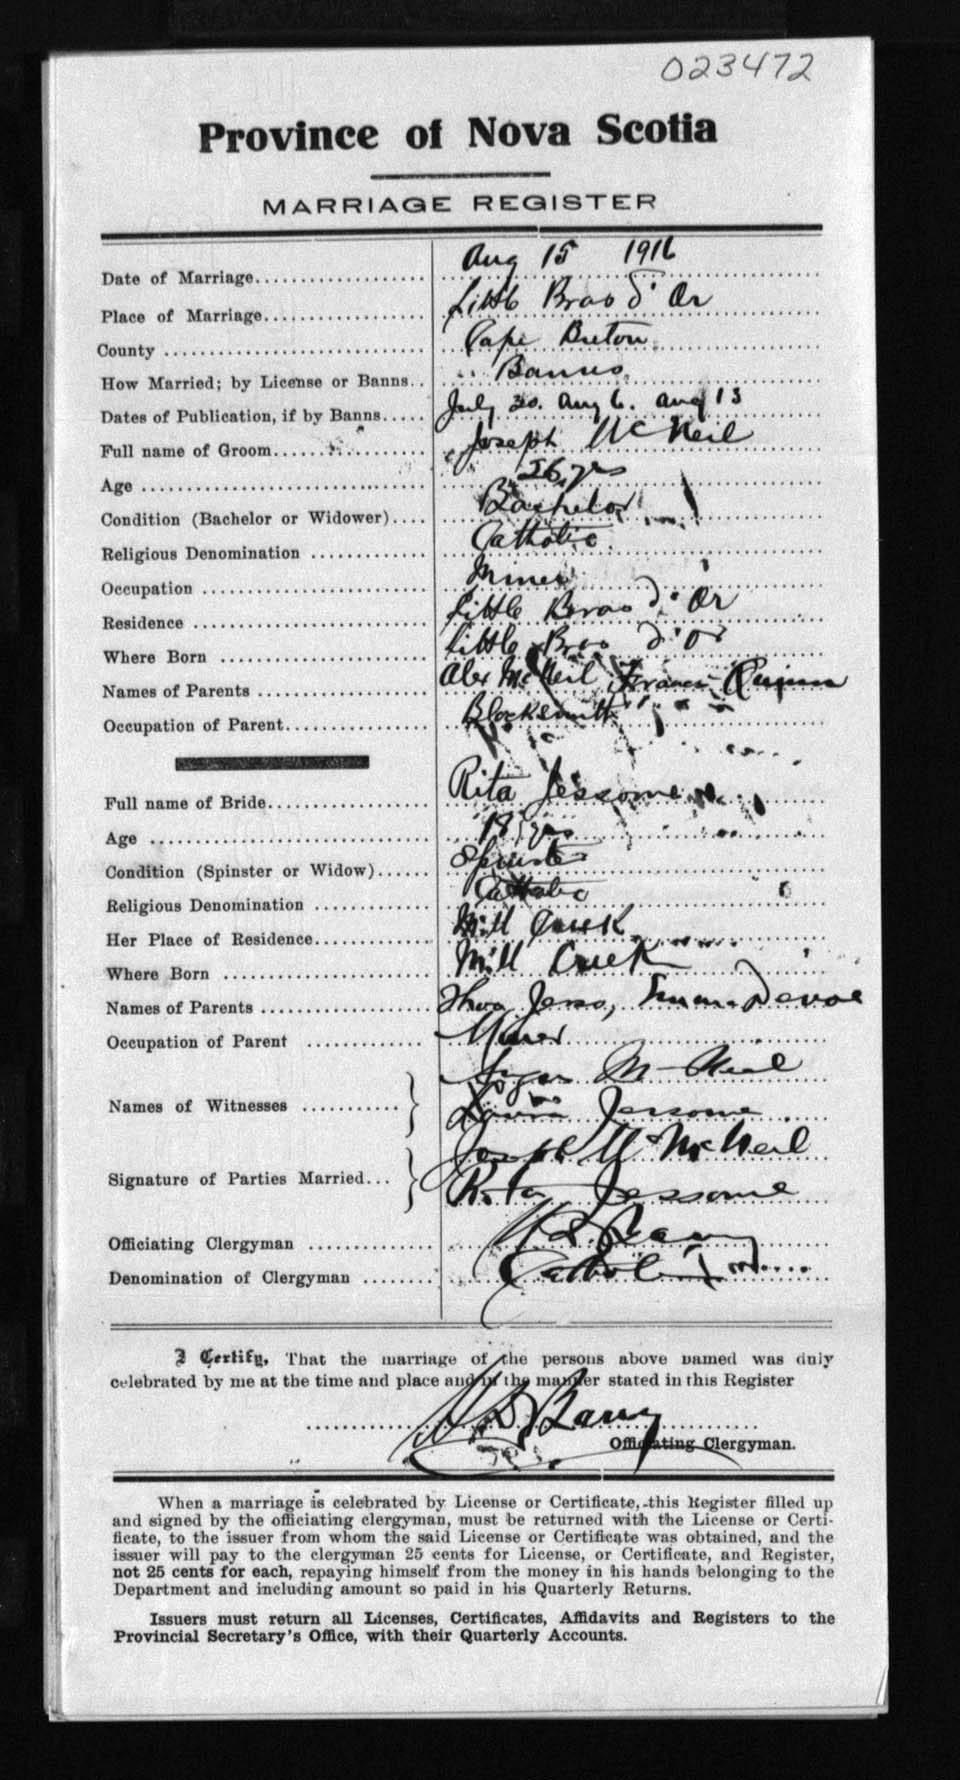 023472
Province of Nova Scotia
MARRIAGE REGISTER
Date of Marriage Aug 15 1916
Place of Marriage Little Bras d'Or
County Cape Breton
How Married; by License or Banns Banns
Dates of Publication, if by Banns July 30. Aug 6. Aug 13
Full name of Groom Joseph McNeil
Age 26 yrs
Condition (Bachelor or Widower) Bachelor
Religious Denomination Catholic
Occupation Miner
Residence Little Bras d'Or
Where Born Little Bras d'Or
Names of Parents Alex McNeil Frances
Occupation of Parent Blacksmith
Full name of Bride Rita Jessome
Age 18 yrs
Condition (Spinster or Widow) Spinster
Religious Denomination Catholic
Her Place of Residence Mill Creek
Where Born Mill Creek
Names of Parents Thos Jesso, Devoe
Occupation of Parent Miner
Names of Witnesses McNeil
Jessome
Signature of Parties Married Joseph McNeil
Rita Jessome
Officiating Clergyman Barry
Denomination of Clergyman Catholic
I Certify, That the marriage of the persons above named was duly
celebrated by me at the time and place and in the manner stated in this Register
Barry
Officiating Clergyman.
When a marriage is celebrated by License or Certificate, this Register filled up
and signed by the officiating clergyman, must be returned with the License or Certi-
ficate, to the issuer from whom the said License or Certificate was obtained, and the
issuer will pay to the clergyman 25 cents for License, or Certificate, and Register,
not 25 cents for each, repaying himself from the money in his hands belonging to the
Department and including amount so paid in his Quarterly Returns.
Issuers must return all Licenses, Certificates, Affidavits and Registers to the
Provincial Secretary's Office, with their Quarterly Accounts.